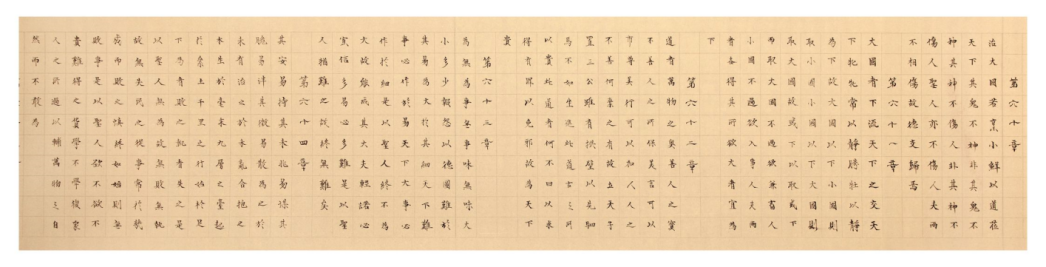 第六十章
治大國若烹小鮮以道莅
天下其鬼不神非其鬼不
神其神不傷人非其神不
傷人聖人亦不傷人夫兩
不相傷故德交歸焉
第六十一章
大國者下流天下之交天
下牝牝常以靜勝牡以靜
為下故大國以下小國則
取小國小國以下大國則
取大國故或下以取或下
而取大國不過欲兼畜人
小國不過欲入事人夫兩
者各得其所欲大者宜為
下
第六十二章
道者萬物之奧善人之寶
不善人之所保美言可以
市尊美行可以加人人之
不善何棄之有故立天子
置三公雖有拱璧以先駟
馬不如坐進此道古之所
以貴此道者何不曰以求
得有罪以免邪故為天下
貴
第六十三章
為無為事無事味無味大
小多少報怨以德圖難於
其易為大於其細天下難
事必作於易天下大事必
作於細是以聖人終不為
大故能成其大夫輕諾必
寡信多易必多難是以聖
人猶難之故終無難矣
第六十四章
其安易持其未兆易謀其
脆易泮其微易散為之於
未有治之於未亂合抱之
木生於毫末九層之臺起
於累土千里之行始於足
下為者敗之執者失之是
以聖人無為故無敗無執
故無失民之從事常於幾
成而敗之慎終如始則無
敗事是以聖人欲不欲不
貴難得之貨學不學復眾
人之所過以輔萬物之自
然而不敢為